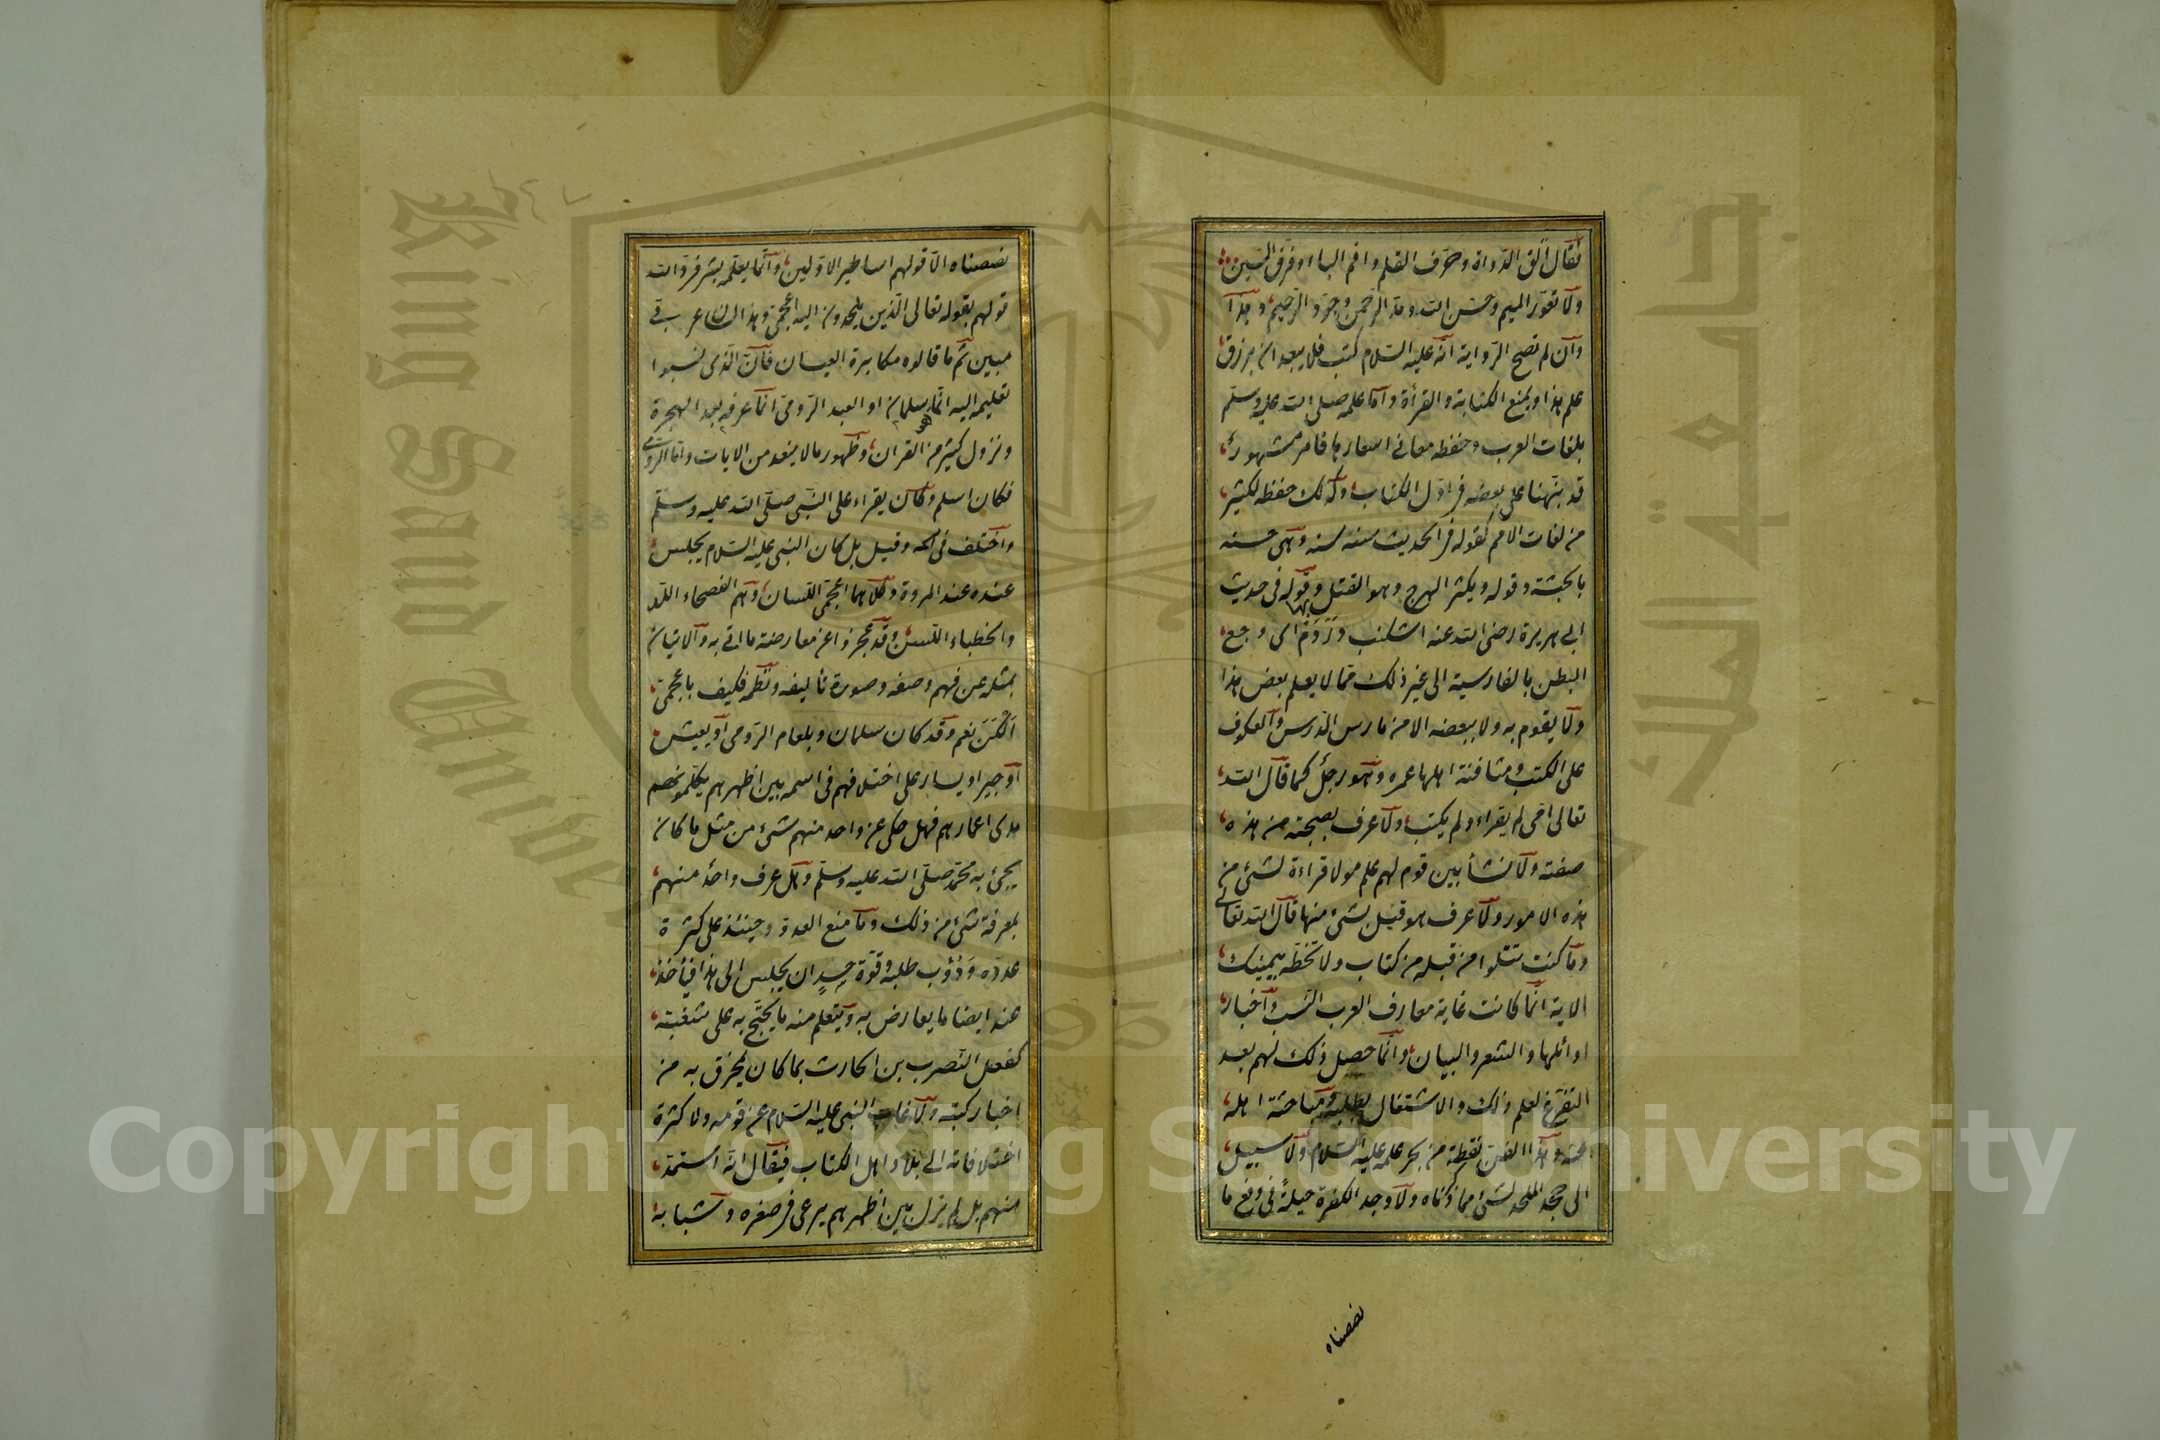 فقال ألق الدواة وحرف القلم واقم الباء وفرق السين
ولا تعور الميم وحسن الله ومد الرحمن وجود الرحيم وهذا
وان لم تصح الرواية انه عليه السلام كتب فلا يبعد ان يرزق
علم هذا ويمنع الكتابة والقرأة واما علمه صلى الله عليه وسلم
بلغات العرب وحفظه معاني اشعارها فامر مشهور
قد نبهنا على بعضه في اول الكتاب وكذلك حفظه لكثير
من لغات الامم كقوله في الحديث سنه سنه وهي حسنه
بالحبشة وقوله ويكثر الهرج وهو القتل بها وقوله في حديث
ابي هريرة رضى الله عنه اشكنب دردم اى وجع
البطن بالفارسية الى غير ذلك مما لا يعلم بعض هذا
ولا يقوم به ولا ببعضه الا من مارس الدرس والعكوف
على الكتب ومثافنة اهلها عمره وهو رجل كما قال الله
تعالى امى لم يقراء ولم يكتب ولا عرف بصحبة من هذه
صفته ولا نشأ بين قوم لهم علم ولا قراءة لشئ من
هذه الامور ولا عرف هو قبل بشئ منها قال الله تعالى
وما كنت تتلوا من قبله من كتاب ولا تخطه بيمينك
الاية انما كانت غاية معارف العرب النسب واخبار
اوائلها والشعر والبيان وانما حصل ذلك لهم بعد
التفرغ لعلم ذلك والاشتغال بطلبه ومباحثة اهله
عنه وهذا الفن نقطة من بحر علمه عليه السلام ولا سبيل
الى جحد الملحد لشئ مما ذكرناه ولا وجد الكفرة حيلة في دفع ما
نصصناه
نصصناه الا قولهم اساطير الاولين وانما يعلمه بشر فرد الله
قولهم بقوله تعالى الذين يلحدون اليه اعجمى وهذا لسان عربي
مبين ثم ما قالوه مكابرة العيان فان الذى نسبوا
تعليمه اليه اما سلمان او العبد الرومى وسلمان انما عرفه بعد الهجرة
ونزول كثير من القران وظهور ما لا ينعد من الايات واما الرومى
فكان اسلم وكان يقراء على النبى صلى الله عليه وسلم
واختلف في اسمه وقيل بل كان النبى عليه السلام يجلس
عنده عند المروة وكلاهما اعجمى اللسان وهم الفصحاء اللد
والخطباء اللسن قد عجزوا عن معارضة ما اتى به والاتيان
بمثله عن فهم وصفه وصورة تأليفه ونظمه فكيف باعجمى
الكن نعم وقد كان سلمان وبلعام الرومى او يعيش
او جبر او يسار على اختلافهم فى اسمه بين اظهرهم يكلمونهم
مدى اعمارهم فهل حكى عن واحد منهم شئ من مثل ما كان
يجئ به محمد صلى الله عليه وسلم وهل عرف واحد منهم
بمعرفة شئ من ذلك وما منع العدو حينئذ على كثرة
عدده ودؤب طلبه وقوة حسده ان يجلس الى هذا فيأخذ
عنه ايضا ما يعارض به ويتعلم منه ما يحتج به على شغبته
كفعل النضر بن الحارث بما كان يمخرق به من
اخبار كتبه ولا غاب النبى عليه السلام عن قومه ولا كثرة
اختلافاته الى بلاد اهل الكتاب فيقال انه استمد
منهم بل لم يزل بين اظهرهم يرعى في صغره وشبابه